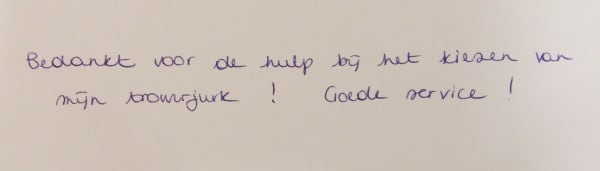 Bedankt voor de hulp bij het kiezen van
mijn trouwjurk ! Goede service !